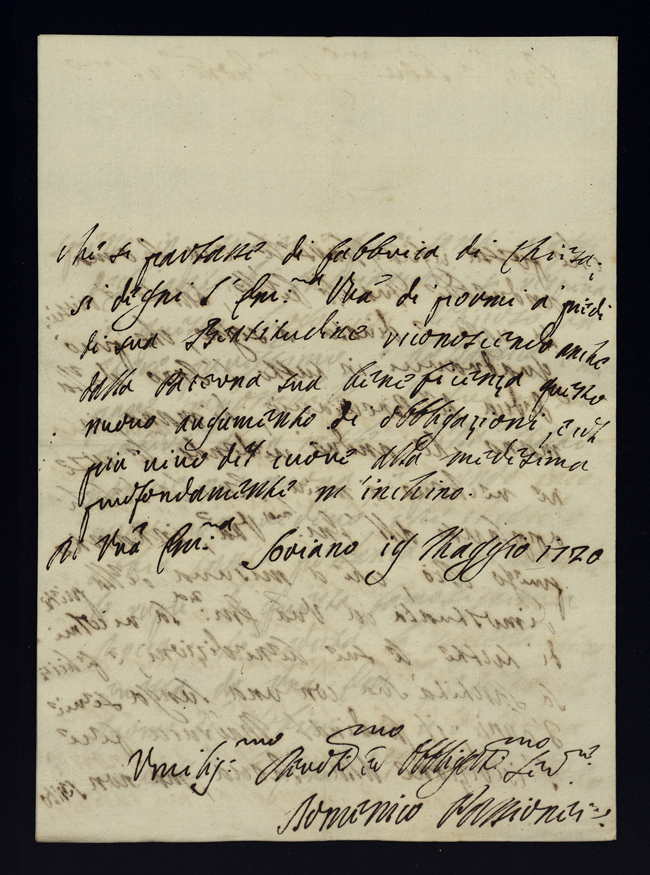 che si parlasse di fabbrica di Chiesa;
si degni l'Em:ma Vra di pormi a piedi
di sua Beatitudine riconoscendo anche
dalla paterna sua beneficienza questo
nuovo augumento di obbligazioni, e col
più vivo del cuore alla medesima
profondamente m'inchino.
Di Vra Em:ma Soriano 19 Maggio 1720
Umilis:mo Devotmo ed Obbligatmo Serv:re
Domenico Passionei